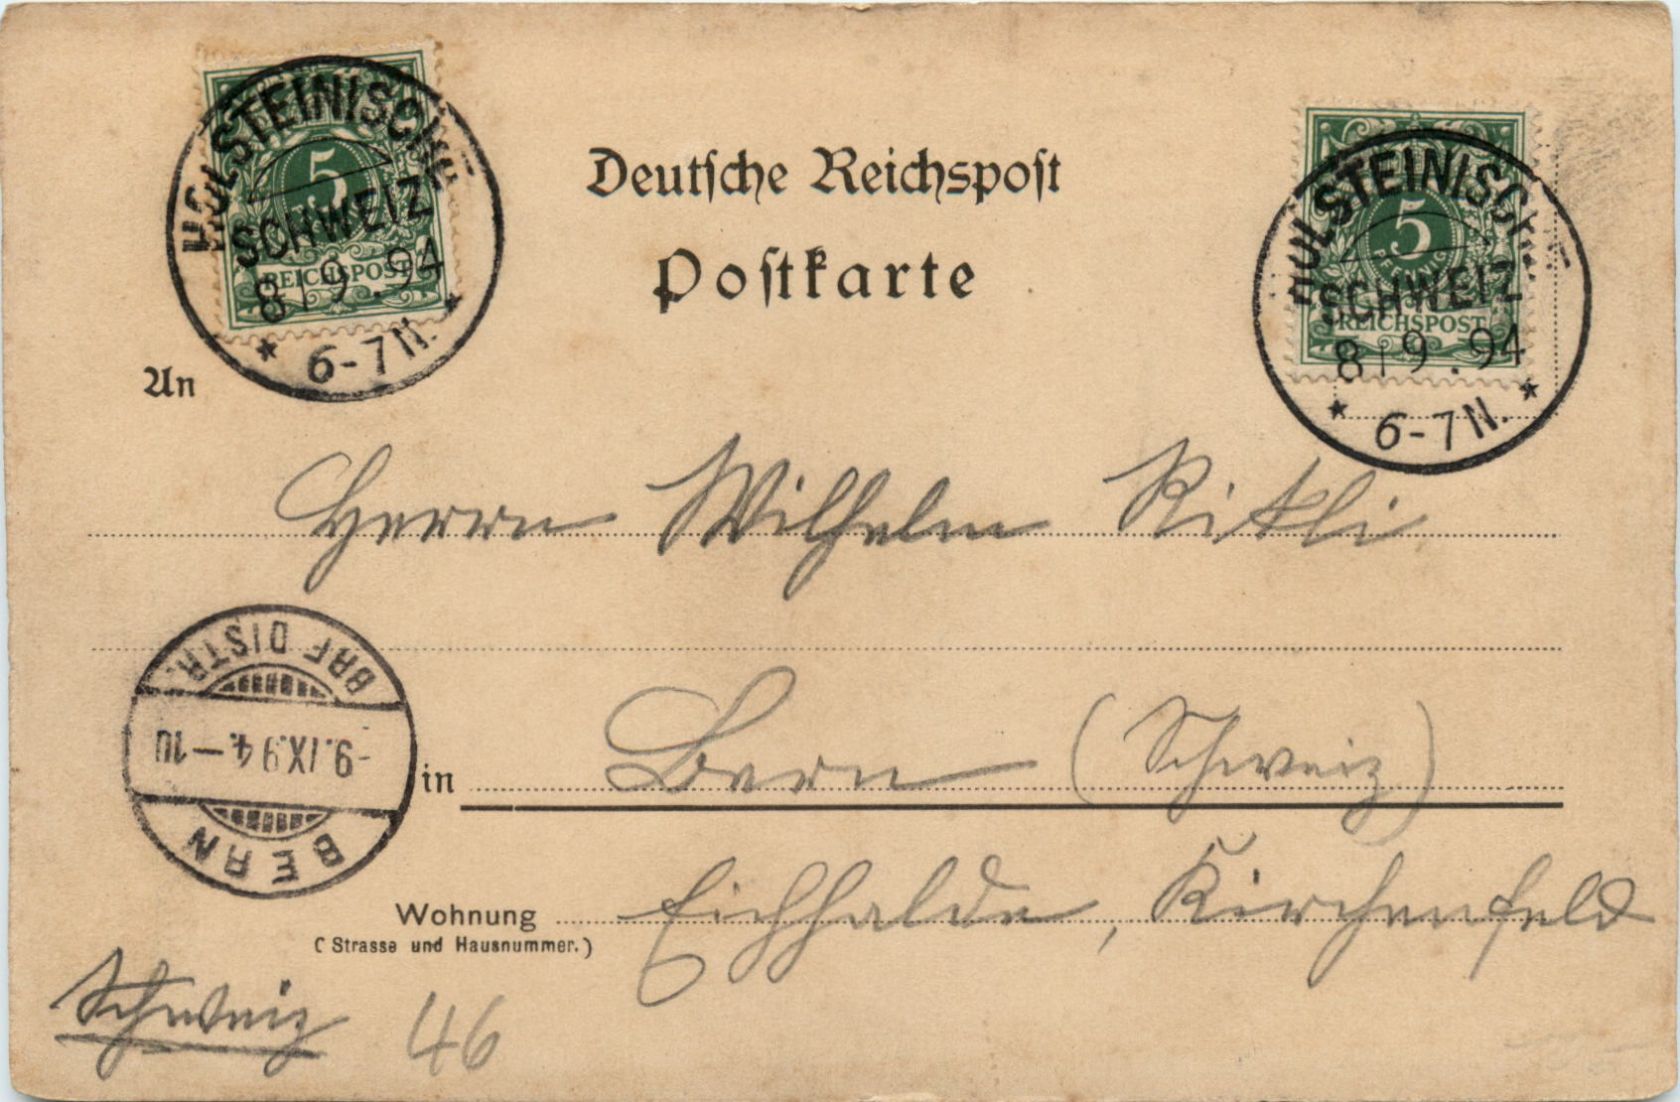 HOLSTEINISCHE
5
SCHWEIZ
REICHSPOST
8 9.94
* 6-7 N. *
Deutsche Reichspost
Postkarte
HOLSTEINISCHE
5
PFENNIG
SCHWEIZ
REICHSPOST
8 9.94
* 6-7 N. *
An
Herrn Wilhelm Rikli
BRF DISTR.
-9.IX.94.-10
BERN
in Bern (Schweiz)
Wohnung Eichhalde, Kirchenfeld
(Strasse und Hausnummer.)
Schweiz 46